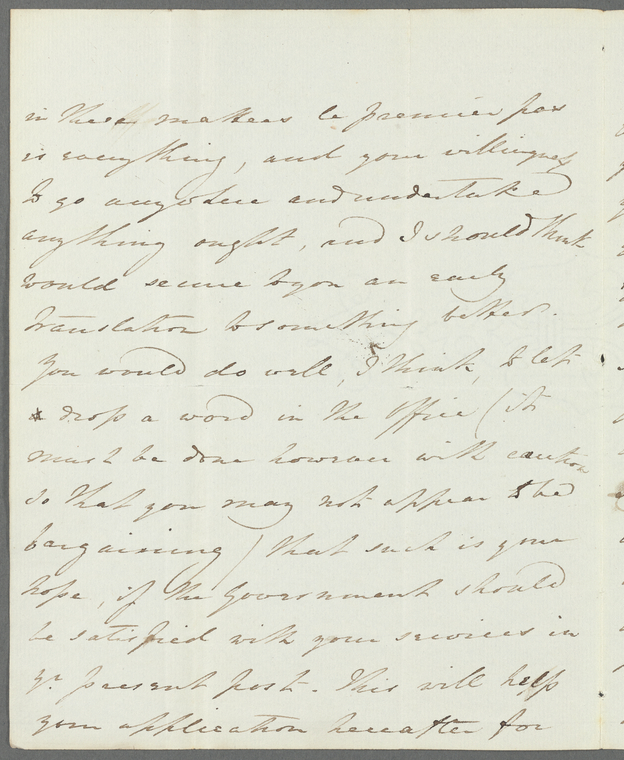 in these matters le premier pas
is everything, and your willingness
to go anywhere and undertake
anything ought, and I should think
would secure to you an early
translation to something better.
You would do well, I think, to let
drop a word in the Office (it
must be done however with caution
so that you may not appear to be
bargaining) that such is your
hope, if the Government should
be satisfied with your services in
yr. present post. This will help
your application hereafter for